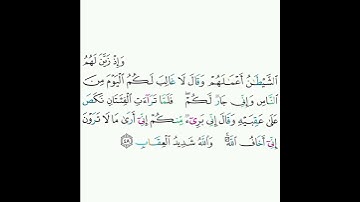 وَإِذْ زَيَّنَ لَهُمُ
الشَّيْطَٰنُ أَعْمَٰلَهُمْ وَقَالَ لَا غَالِبَ لَكُمُ الْيَوْمَ مِنَ
النَّاسِ وَإِنِّي جَارٌ لَكُمْ ۖ فَلَمَّا تَرَاءَتِ الْفِئَتَانِ نَكَصَ
عَلَىٰ عَقِبَيْهِ وَقَالَ إِنِّي بَرِيءٌ مِنْكُمْ إِنِّي أَرَىٰ مَا لَا تَرَوْنَ
إِنِّي أَخَافُ اللَّهَ ۚ وَاللَّهُ شَدِيدُ الْعِقَابِ ٤٨